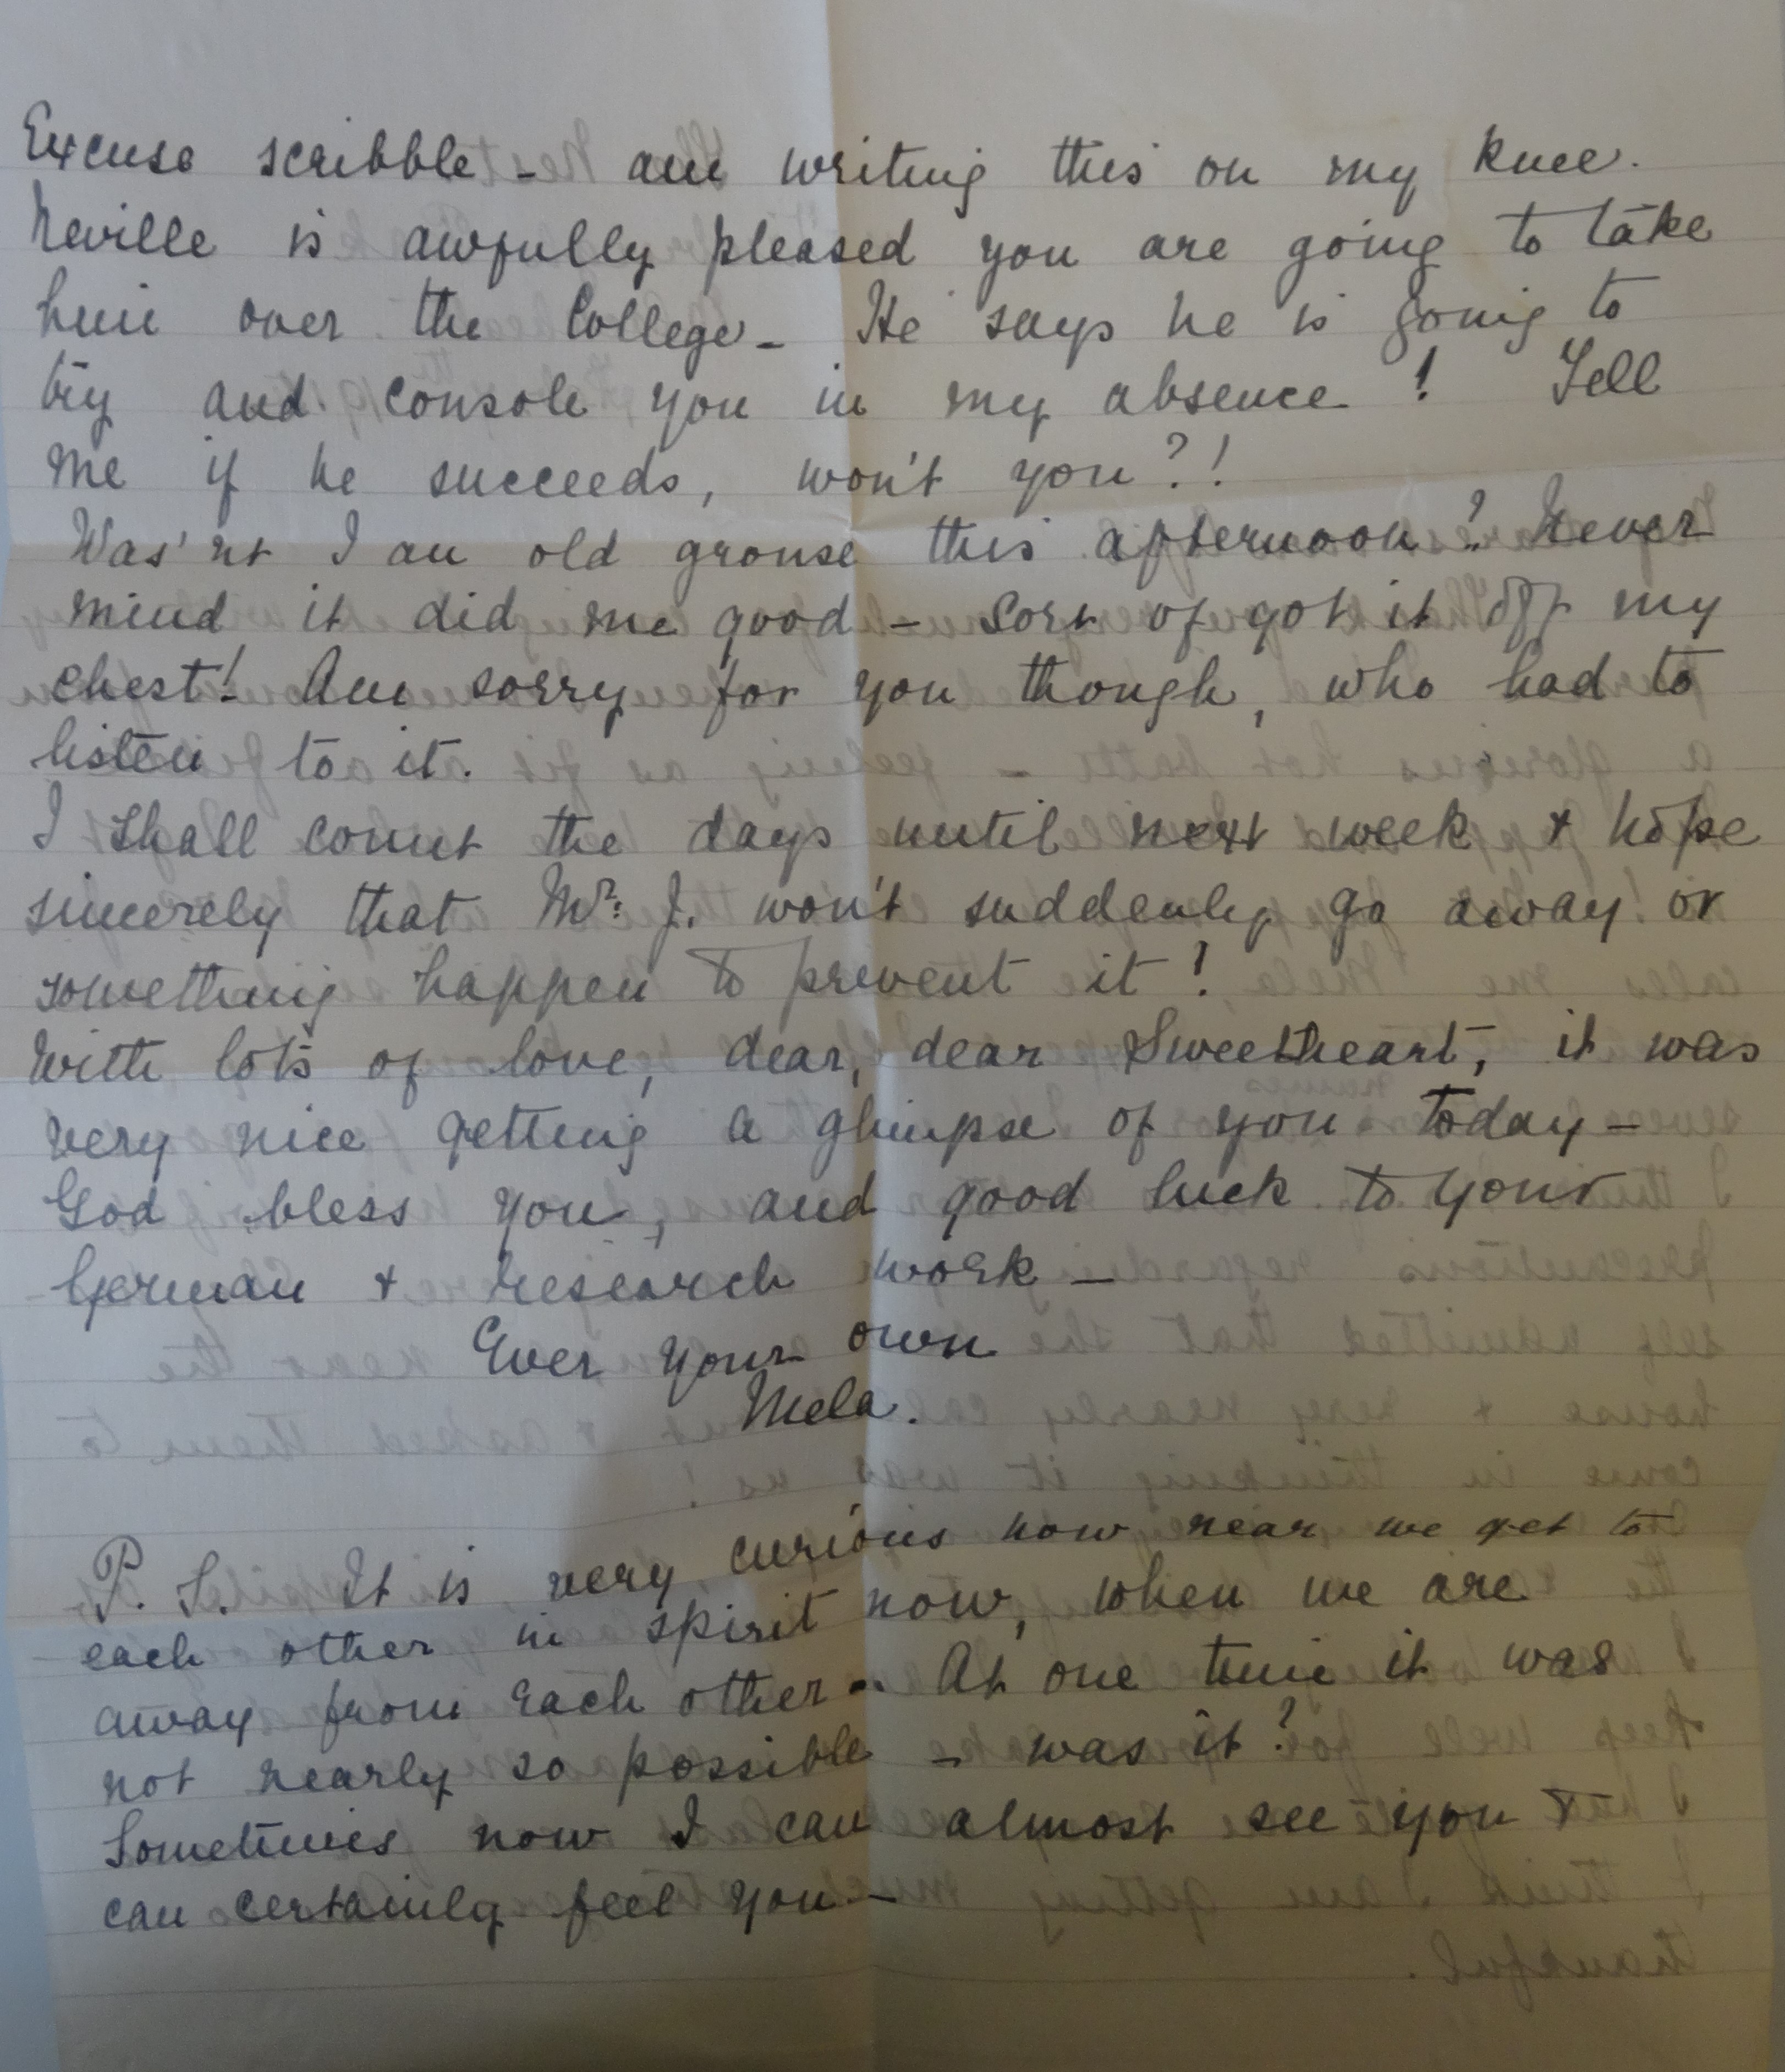 Excuse scribble - am writing this on my knee.
Neville is awfully pleased you are going to take
him over the College - He says he is going to
try and console you in my absence! Tell
me if he succeeds, won't you?!
Was'nt I an old grouse this afternoon? Never
mind it did me good - sort of got it off my
chest! Am sorry for you though, who had to
listen to it.
I shall count the days until next week & hope
sincerely that Mr. J. won't suddenly go away or
something happen to prevent it!
With lots of love, dear, dear Sweetheart, it was
very nice getting a glimpse of you today -
God bless you, and good luck to your
German & research work -
Ever your own
Mela.
P. S. It is very curious how near we get to
each other in spirit now, when we are
away from each other - At one time it was
not nearly so possible - was it?
Sometimes now I can almost see you &
can certainly feel you -